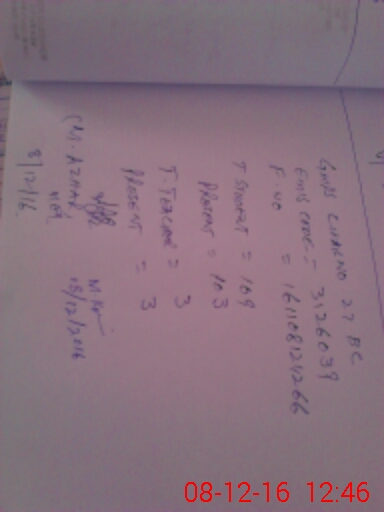 GMPS CHAK NO 27 BC
EMIS CODE = 3126039
F-NO = 161108124266
T STUDENT = 109
PRESENT = 103
T. TEACHER = 3
PRESENT = 3
M. AZHAR
8/12/16
08/12/2016
08-12-16 12:46